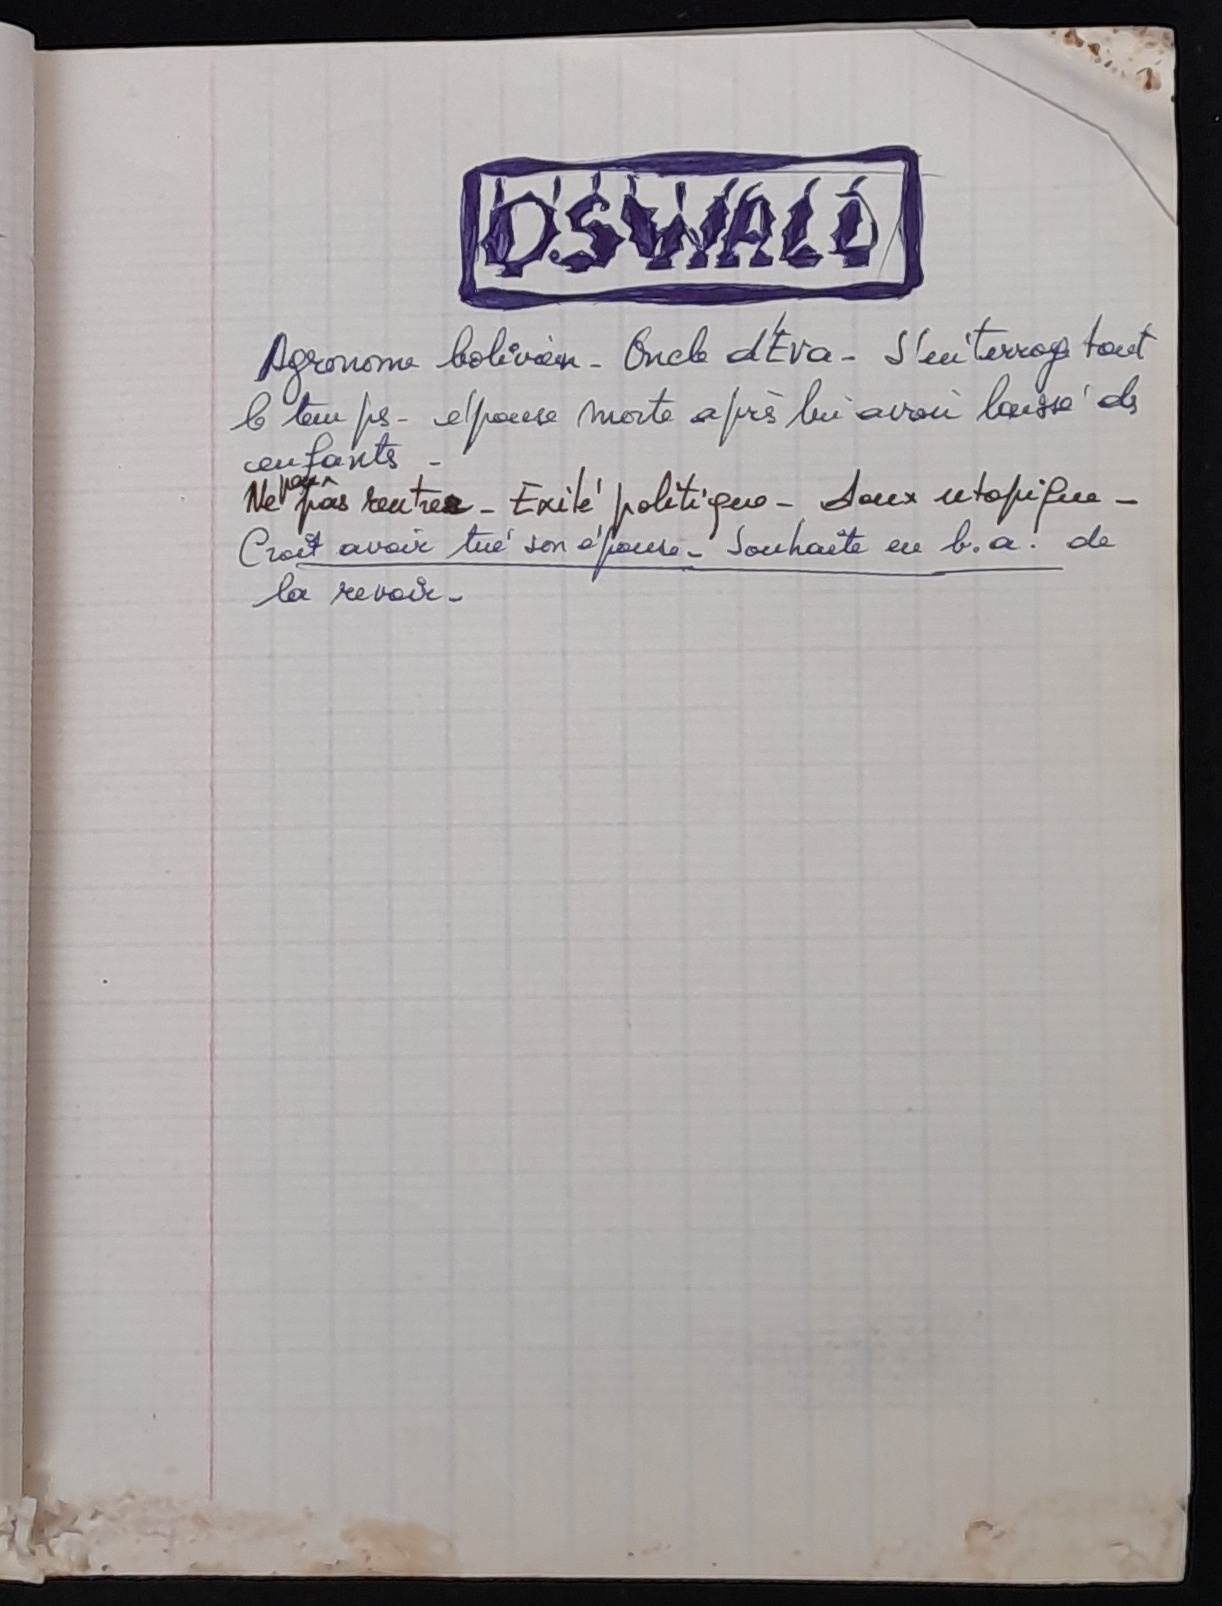 OSWALD
Agronome bolivien - Oncle d'Eva - S'interroge tout
le temps - épouse morte après lui avoir laissé des
enfants -
peut
Ne pas rentrer - Exilé politique - doux utopique -
Croit avoir tué son épouse - Souhaite en b.a. de
la revoir -